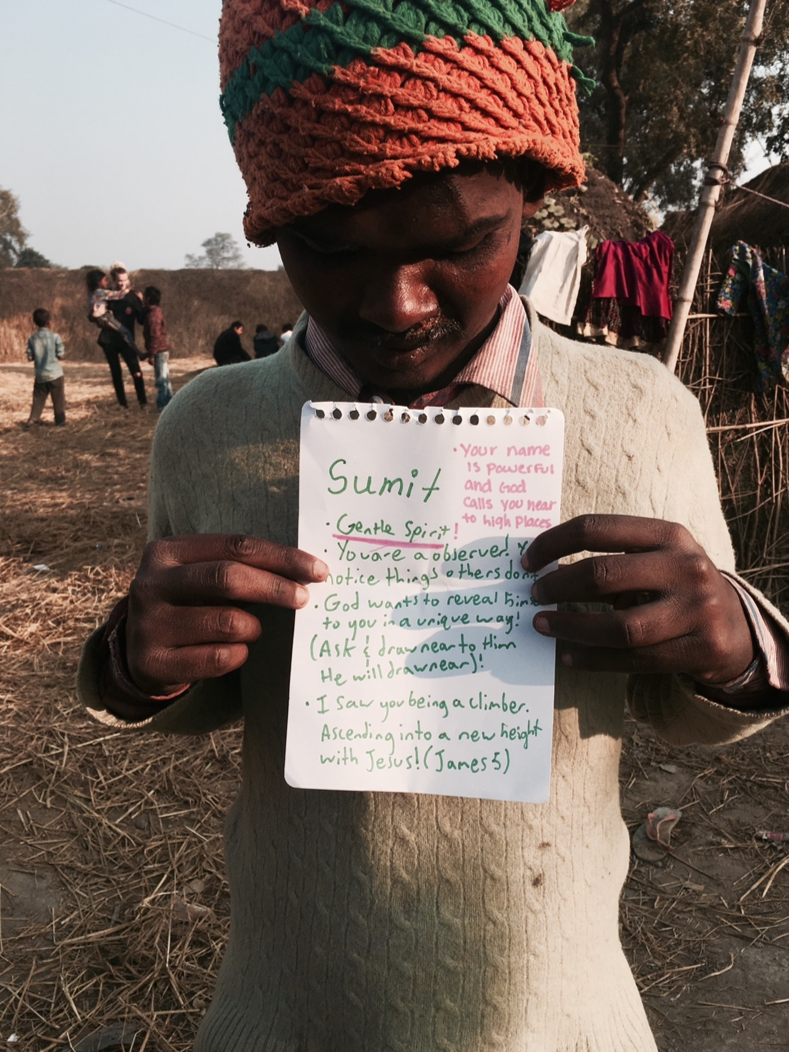 Sumit
• Your name
is powerful
and God
calls you near
to high places
• Gentle Spirit!
• You are a observed
notice things others don't
• God wants to reveal
to you in a unique way!
(Ask & draw near to Him
He will draw near)!
• I saw you being a climber.
Ascending into a new height
with Jesus! (James 5)